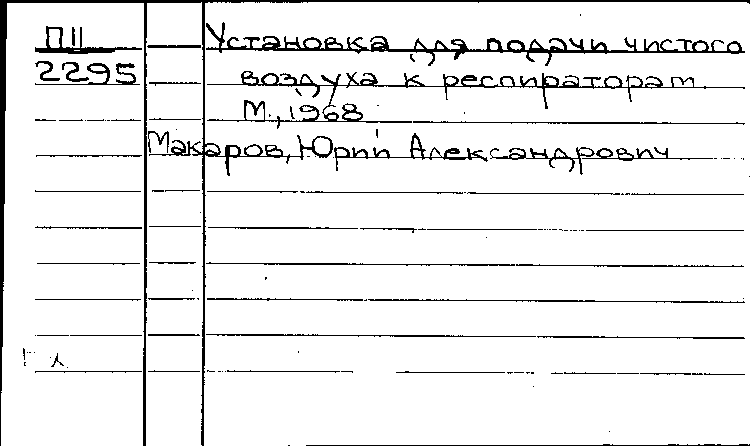 П11 Установка для подачи чистого
2295 воздуха к респираторам.
М., 1968
Макаров, Юрий Александрович